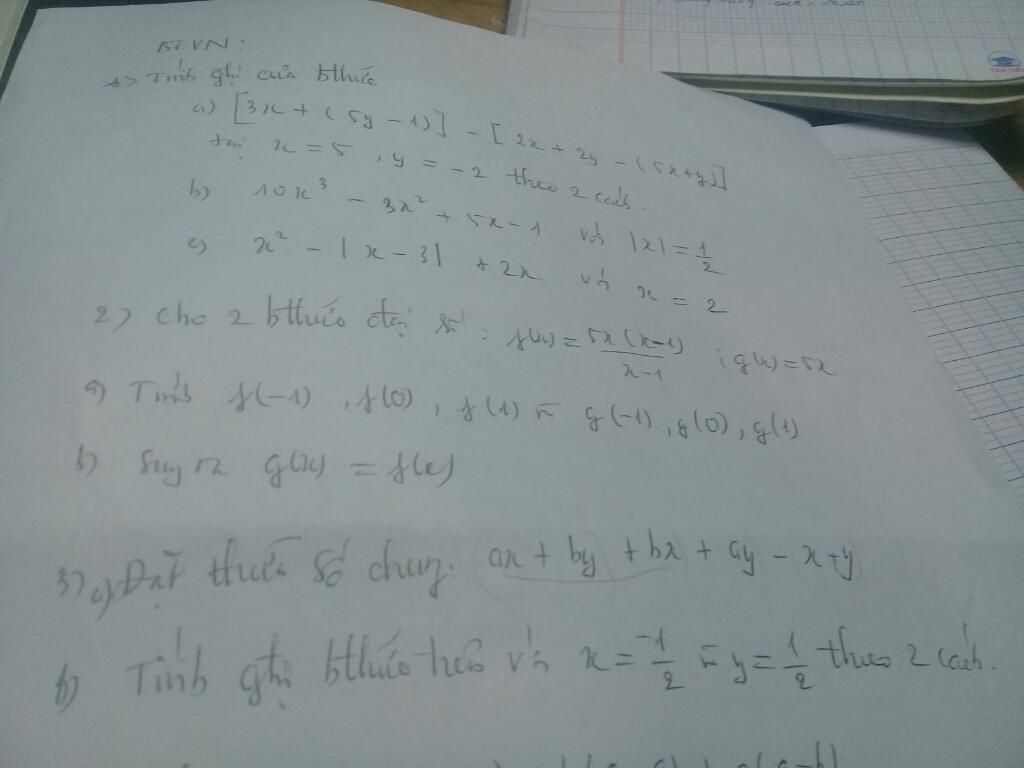 BTVN:
1> Tính gtrị của bthức
a) [3x + (5y - 1)] - [2x + 2y - (5x+y)]
tại x = 5 , y = -2 theo 2 cách.
b) 10x³ - 3x² + 5x - 1 với |x| = 1/2
c) x² - |x - 3| + 2x với x = 2
2> Cho 2 bthức đại số : f(x) = 5x(x-1)/x-1 ; g(x) = 5x
a) Tính f(-1) , f(0) , f(1) và g(-1) , g(0) , g(1)
b) Suy ra g(x) = f(x)
3> a) Đặt thừa số chung: ax + by + bx + ay - x + y
b) Tính gtrị bthức trên với x = -1/2 và y = 1/2 theo 2 cách.